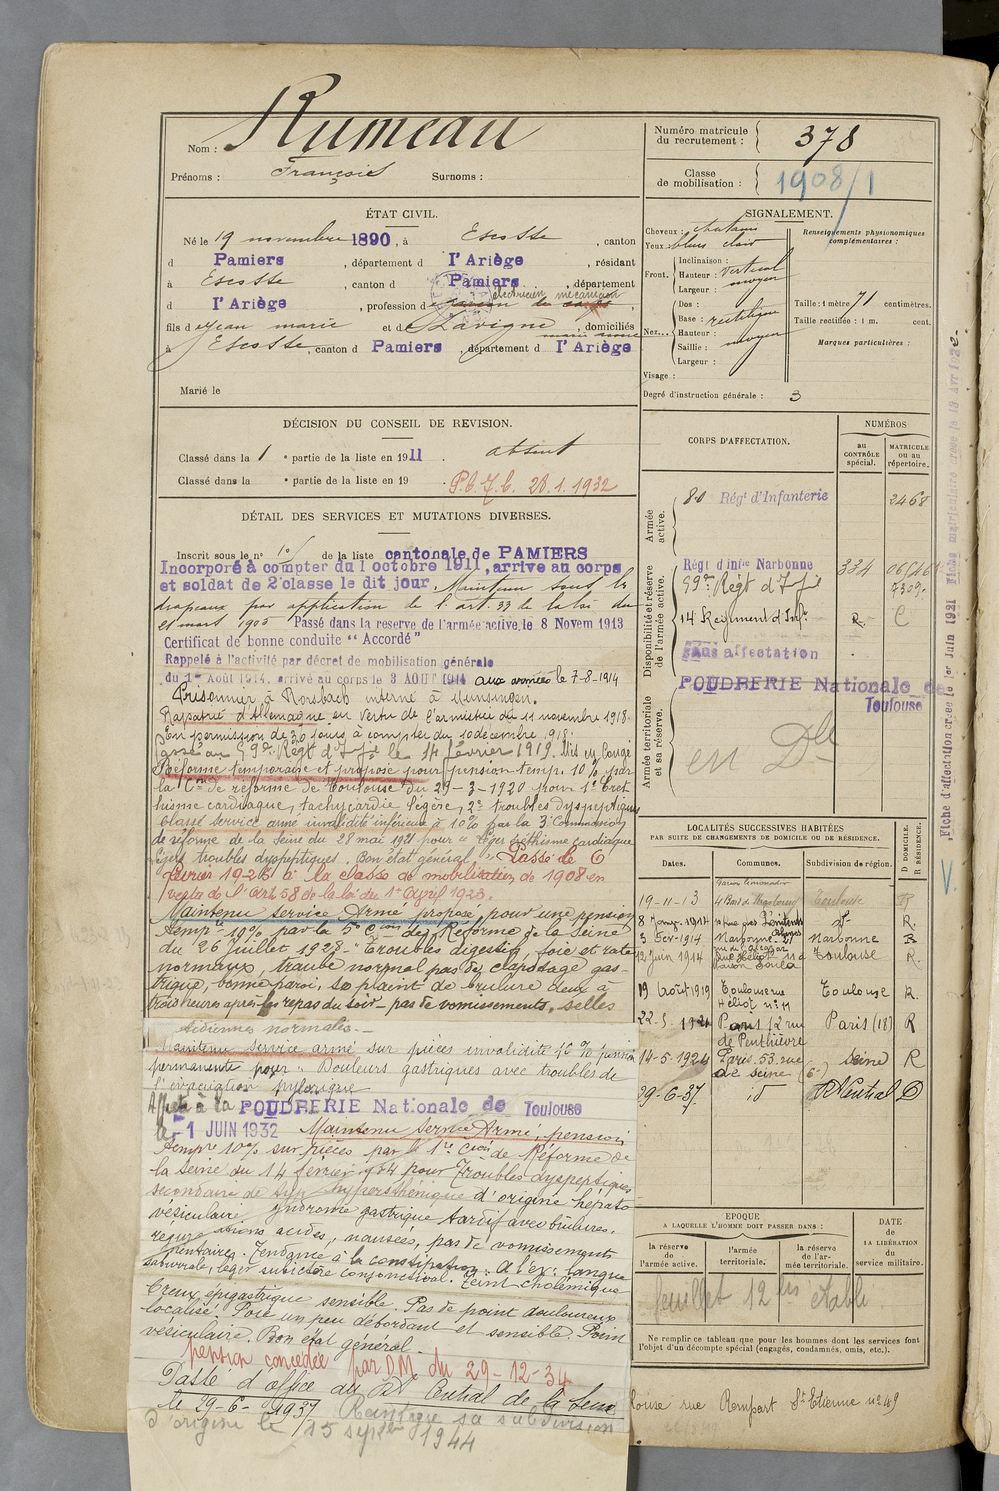 Nom : Rumeau
Prénoms : François Surnoms :
Numéro matricule du recrutement : 378
Classe de mobilisation : 1908/1
ÉTAT CIVIL.
Né le 19 novembre 1890, à Escosse, canton
d Pamiers, département d l'Ariège, résidant
à Escosse, canton d Pamiers, département
électricien mécanicien
d l'Ariège, profession d
fils d Jean marie et d Lavigne, domiciliés
à Escosse, canton d Pamiers, département d l'Ariège
Marié le
SIGNALEMENT.
Cheveux : chatains
Yeux bleus clair
Front. Inclinaison :
Hauteur : vertical
Largeur : moyen
Nez... Dos :
Base : rectiligne
Hauteur :
Saillie : moyen
Largeur :
Visage :
Renseignements physionomiques complémentaires :
Taille : 1 mètre 71 centimètres.
Taille rectifiée : 1 m. cent.
Marques particulières :
Degré d'instruction générale : 3
DÉCISION DU CONSEIL DE REVISION.
Classé dans la 1 e partie de la liste en 1911 . absent
Classé dans la e partie de la liste en 19 . 28.1.1932
DÉTAIL DES SERVICES ET MUTATIONS DIVERSES.
Inscrit sous le n° de la liste cantonale de PAMIERS
Incorporé à compter du 1 octobre 1911, arrive au corps
et soldat de 2e classe le dit jour. Maintenu sous les
drapeaux par application de l'art. 33 de la loi du
21 mars 1905 Passé dans la reserve de l'armée active, le 8 Novem 1913
Certificat de bonne conduite "Accordé"
Rappelé à l'activité par décret de mobilisation générale
du 1er Août 1914. arrivé au corps le 3 AOUT 1914 aux armées le 7-8-1914
Prisonnier à Rorbach interné à Munsingen.
Rapatrié d'Allemagne en vertu de l'armistice du 11 novembre 1918.
En permission de 30 jours à compter du 10 décembre 918.
Passé au 59me Régt d'Ifie le 14 février 1919. Mis en congé
Réforme temporaire et proposé pour pension temp. 10% par
la Con de réforme de Toulouse du 29-3-1920 pour 1° éré
thisme cardiaque, tachycardie légère, 2° troubles dyspeptiques
Classé service armé invalidité inférieure à 10% par la 3e Commission
de réforme de la Seine du 28 mai 1921 pour "léger éréthisme cardiaque
légers troubles dyspeptiques. Bon état général". Passé le 6
février 1925 à la classe de mobilisation de 1908 en
vertu de l'Art. 58 de la loi du 1er Avril 1923.
Maintenu service Armé proposé, pour une pension
temp re 10% par la 5e Cion de Réforme de la Seine
du 26 Juillet 1928 "Troubles digestifs, foie et rate
normaux, traube normal pas de clapotage gas-
trique, bonne paroi, se plaint de brulure deux à
trois heures après les repas du soir - pas de vomissements, selles
tidiennes normales. -
Maintenu service armé sur pièces invalidité 10% pension
permanente pour "Douleurs gastriques avec troubles de
l'évacuation pylorique
Affecté à la POUDRERIE Nationale de Toulouse
le -1 JUIN 1932 Maintenu Service Armé, pension
temp re 10% sur pièces par la 1re Cion de Réforme de
la Seine du 14 février 934 pour Troubles dyspeptiques
secondaire de type hypersthénique d'origine hépato
vésiculaire, syndrome gastrique tardif avec brûlures.
acides, nausées, pas de vomissements
Tendance à la constipation. A l'ex : langue
saburrale, léger subictère conjonctival. Teint cholémique
Creux épigastrique sensible. Pas de point douloureux
localisé. Foie un peu débordant et sensible. Point
vésiculaire. Bon état général.
pension concédée par D.M. du 29-12-34
Passé d'office au Central de la Seine
le 29-6-1937 Réintégré sa subdivision
d'origine le 15 sept 1944
CORPS D'AFFECTATION.
NUMÉROS
au CONTRÔLE spécial.
MATRICULE ou au répertoire.
Armée active.
80 Régt d'Infanterie 2468
Disponibilité et réserve de l'armée active.
Régt d'Infie Narbonne 334
59me Régt d'Ifie 7309
14 Régiment d'Infie R. C
sans affectation
POUDRERIE Nationale de
Toulouse
Armée territoriale et sa réserve.
en Dle
LOCALITÉS SUCCESSIVES HABITÉES
PAR SUITE DE CHANGEMENTS DE DOMICILE OU DE RÉSIDENCE.
Dates. Communes. Subdivision de région. D DOMICILE. R RÉSIDENCE.
19-11-13 Toulouse R
8 Janv. 1914 R.
3 Fev-1914 Narbonne Narbonne R
12 Juin 1914 Toulouse R.
19 Août 1919 Toulouse rue Héliot n° 11 Toulouse R.
22-5-1921 Paris 12 rue de Penthièvre Paris (18) R
14-5-1924 Paris. 53. rue de Seine (6e) Seine R
29-6-37 id Central D
EPOQUE
A LAQUELLE L'HOMME DOIT PASSER DANS :
la réserve de l'armée active.
l'armée territoriale.
la réserve de l'armée territoriale.
DATE de LA LIBÉRATION du service militaire.
feuillet 12 bis établi
Ne remplir ce tableau que pour les hommes dont les services font
l'objet d'un décompte spécial (engagés, condamnés, omis, etc.).
louse rue Rempart St Etienne n° 49
Fiche d'affectation créée le 1er Juin 1921 Fiche matriculaire créée le 18 Avr 1922